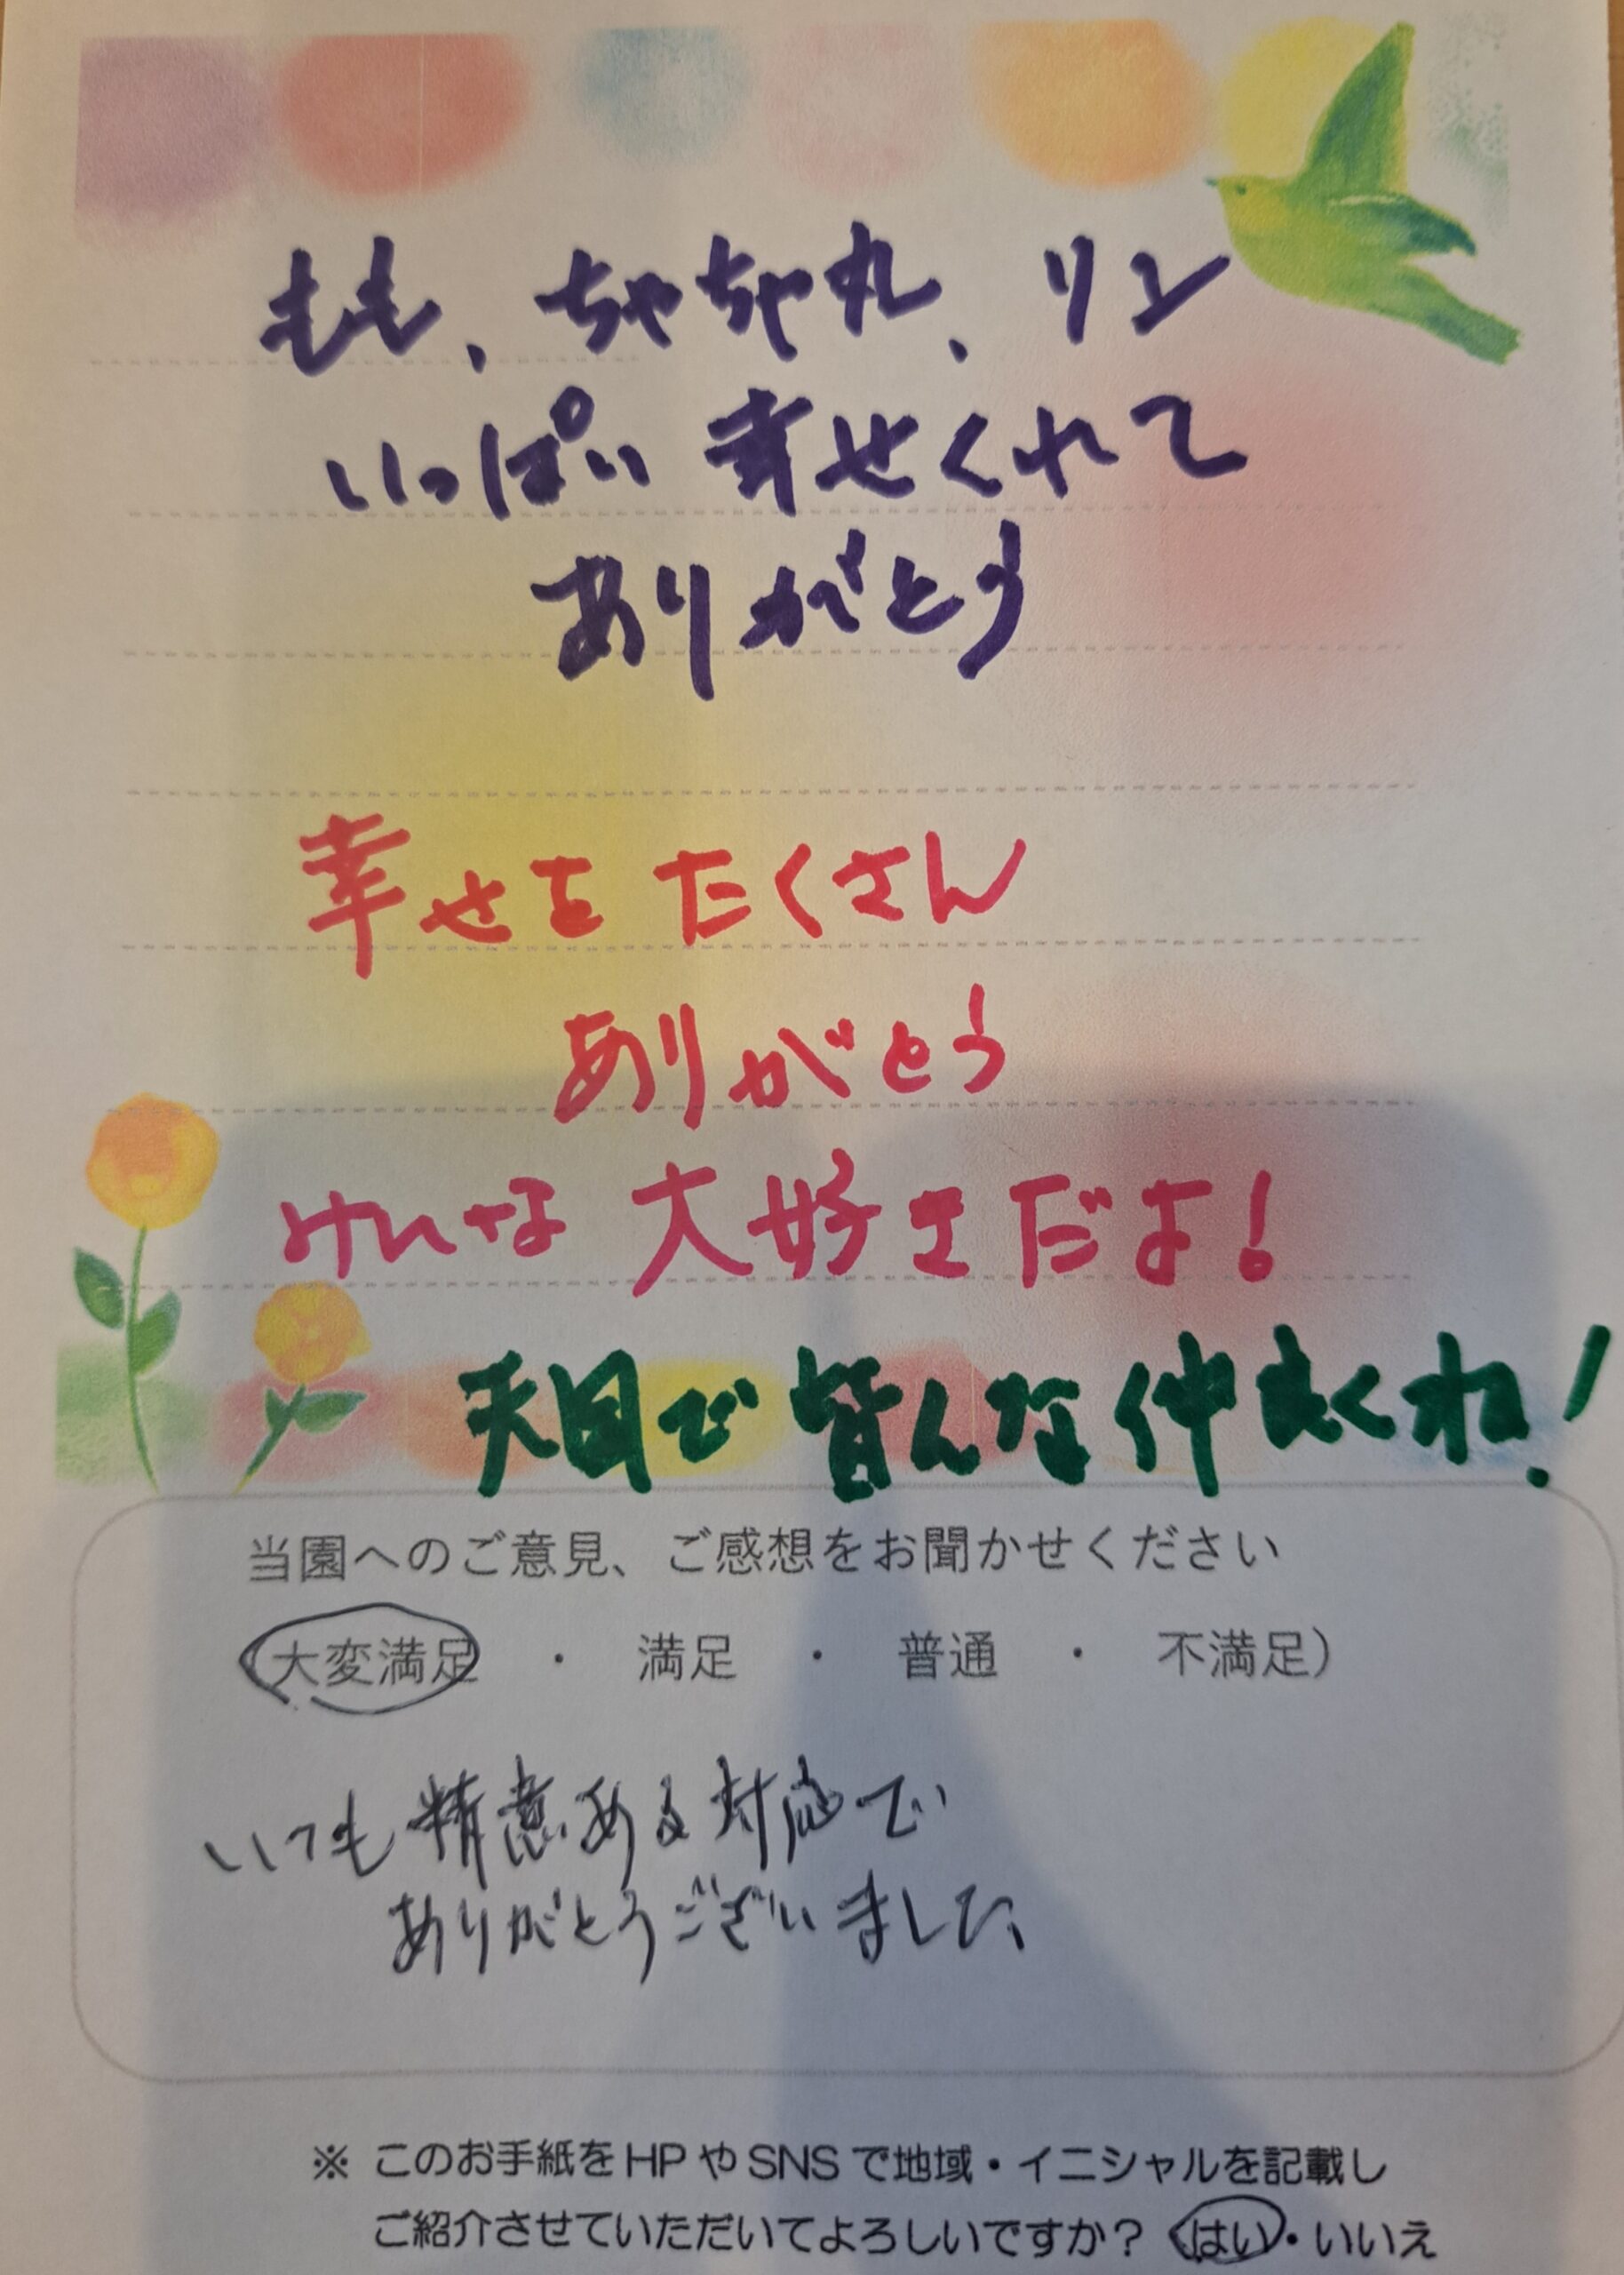 もも、ちゃちゃ丸、リン
いっぱい幸せくれて
ありがとう
幸せをたくさん
ありがとう
みんな大好きだよ!
天国で皆んな仲良くね!
当園へのご意見、ご感想をお聞かせください
(大変満足 ・ 満足 ・ 普通 ・ 不満足)
いつも精意ある対応で
ありがとうございました
※ このお手紙をHPやSNSで地域・イニシャルを記載し
ご紹介させていただいてよろしいですか? (はい・いいえ